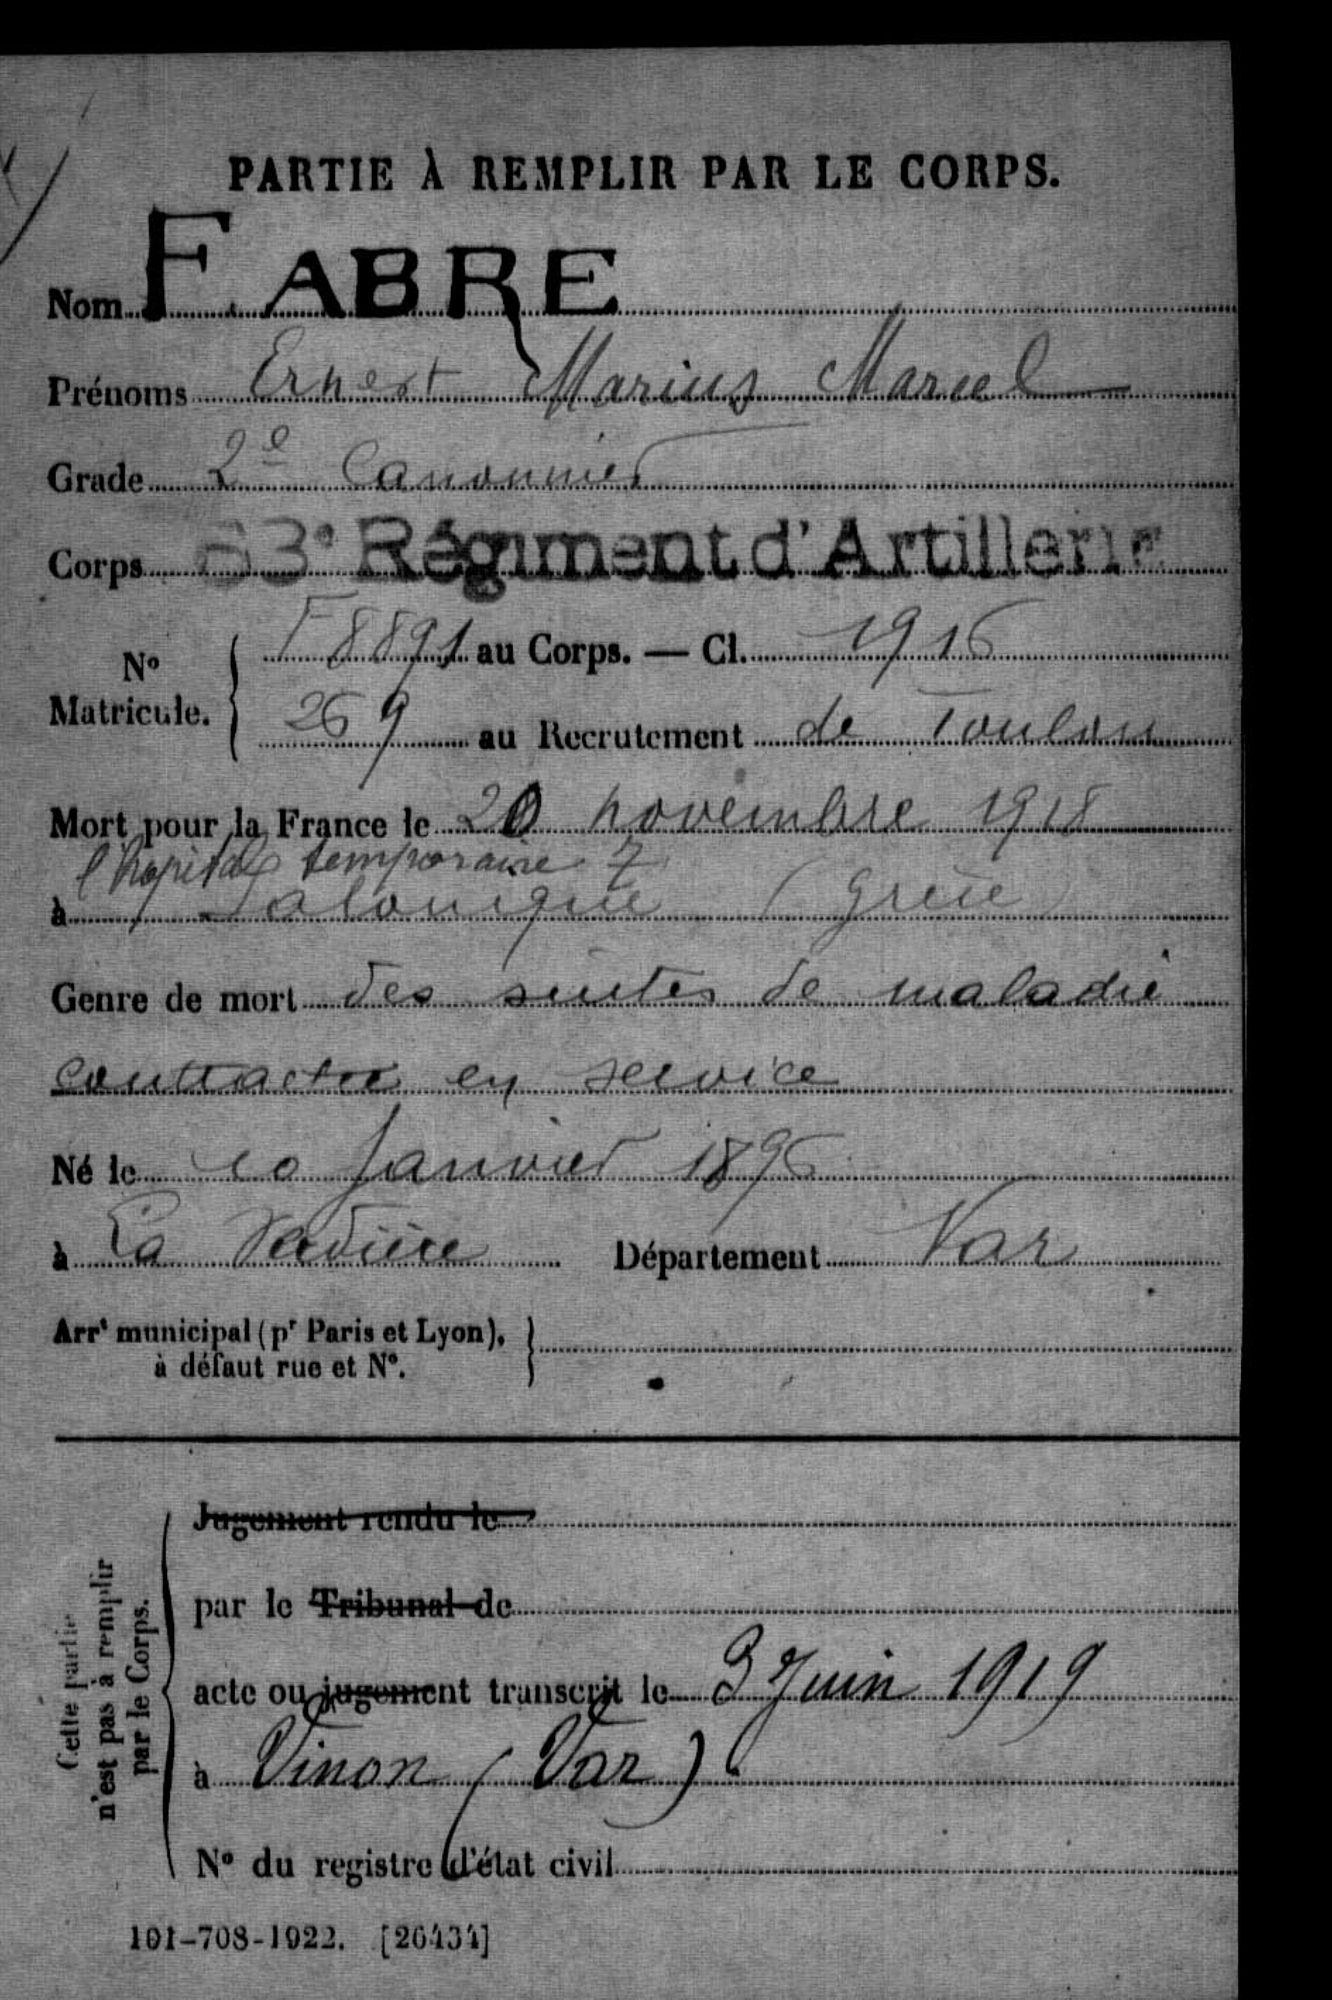 PARTIE À REMPLIR PAR LE CORPS.
Nom FABRE
Prénoms Ernest Marius Marcel
Grade 2e Canonnier
Corps 63e Régiment d'Artillerie
No Matricule. F8891 au Corps. — Cl. 1916
269 au Recrutement de Toulon
Mort pour la France le 20 novembre 1918
l'hopital temporaire 7
à Salonique (Grèce)
Genre de mort des suites de maladie
contractée en service
Né le 10 Janvier 1896
à La Verdière Département Var
Arrt municipal (pr Paris et Lyon),
à défaut rue et No.
Cette partie
n'est pas à remplir
par le Corps.
Jugement rendu le
par le Tribunal de
acte ou jugement transcrit le 3 Juin 1919
à Vinon (Var)
No du registre d'état civil
101-708-1922. [26434]